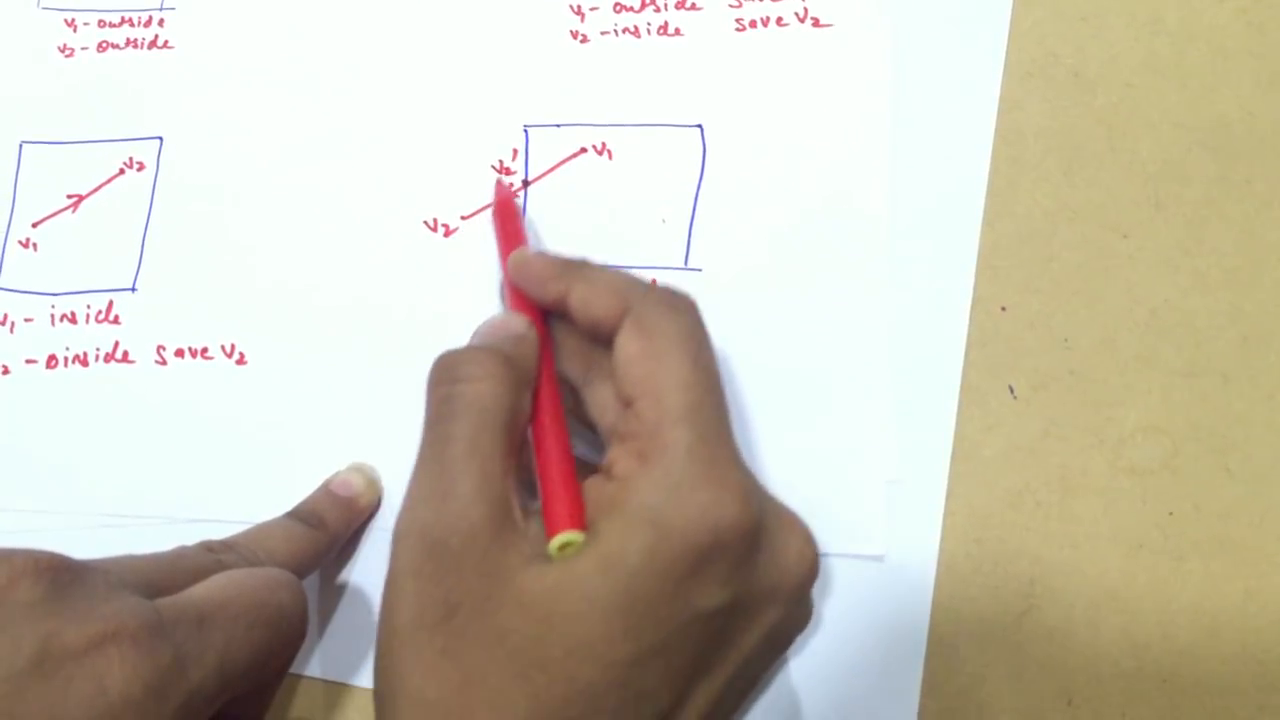 v₁ - outside
v₂ - outside
v₁ - outside save
v₂ - inside save v₂
v₂
v₁
v₁ - inside
₂ - inside save v₂
v₂'
v₁
v₂